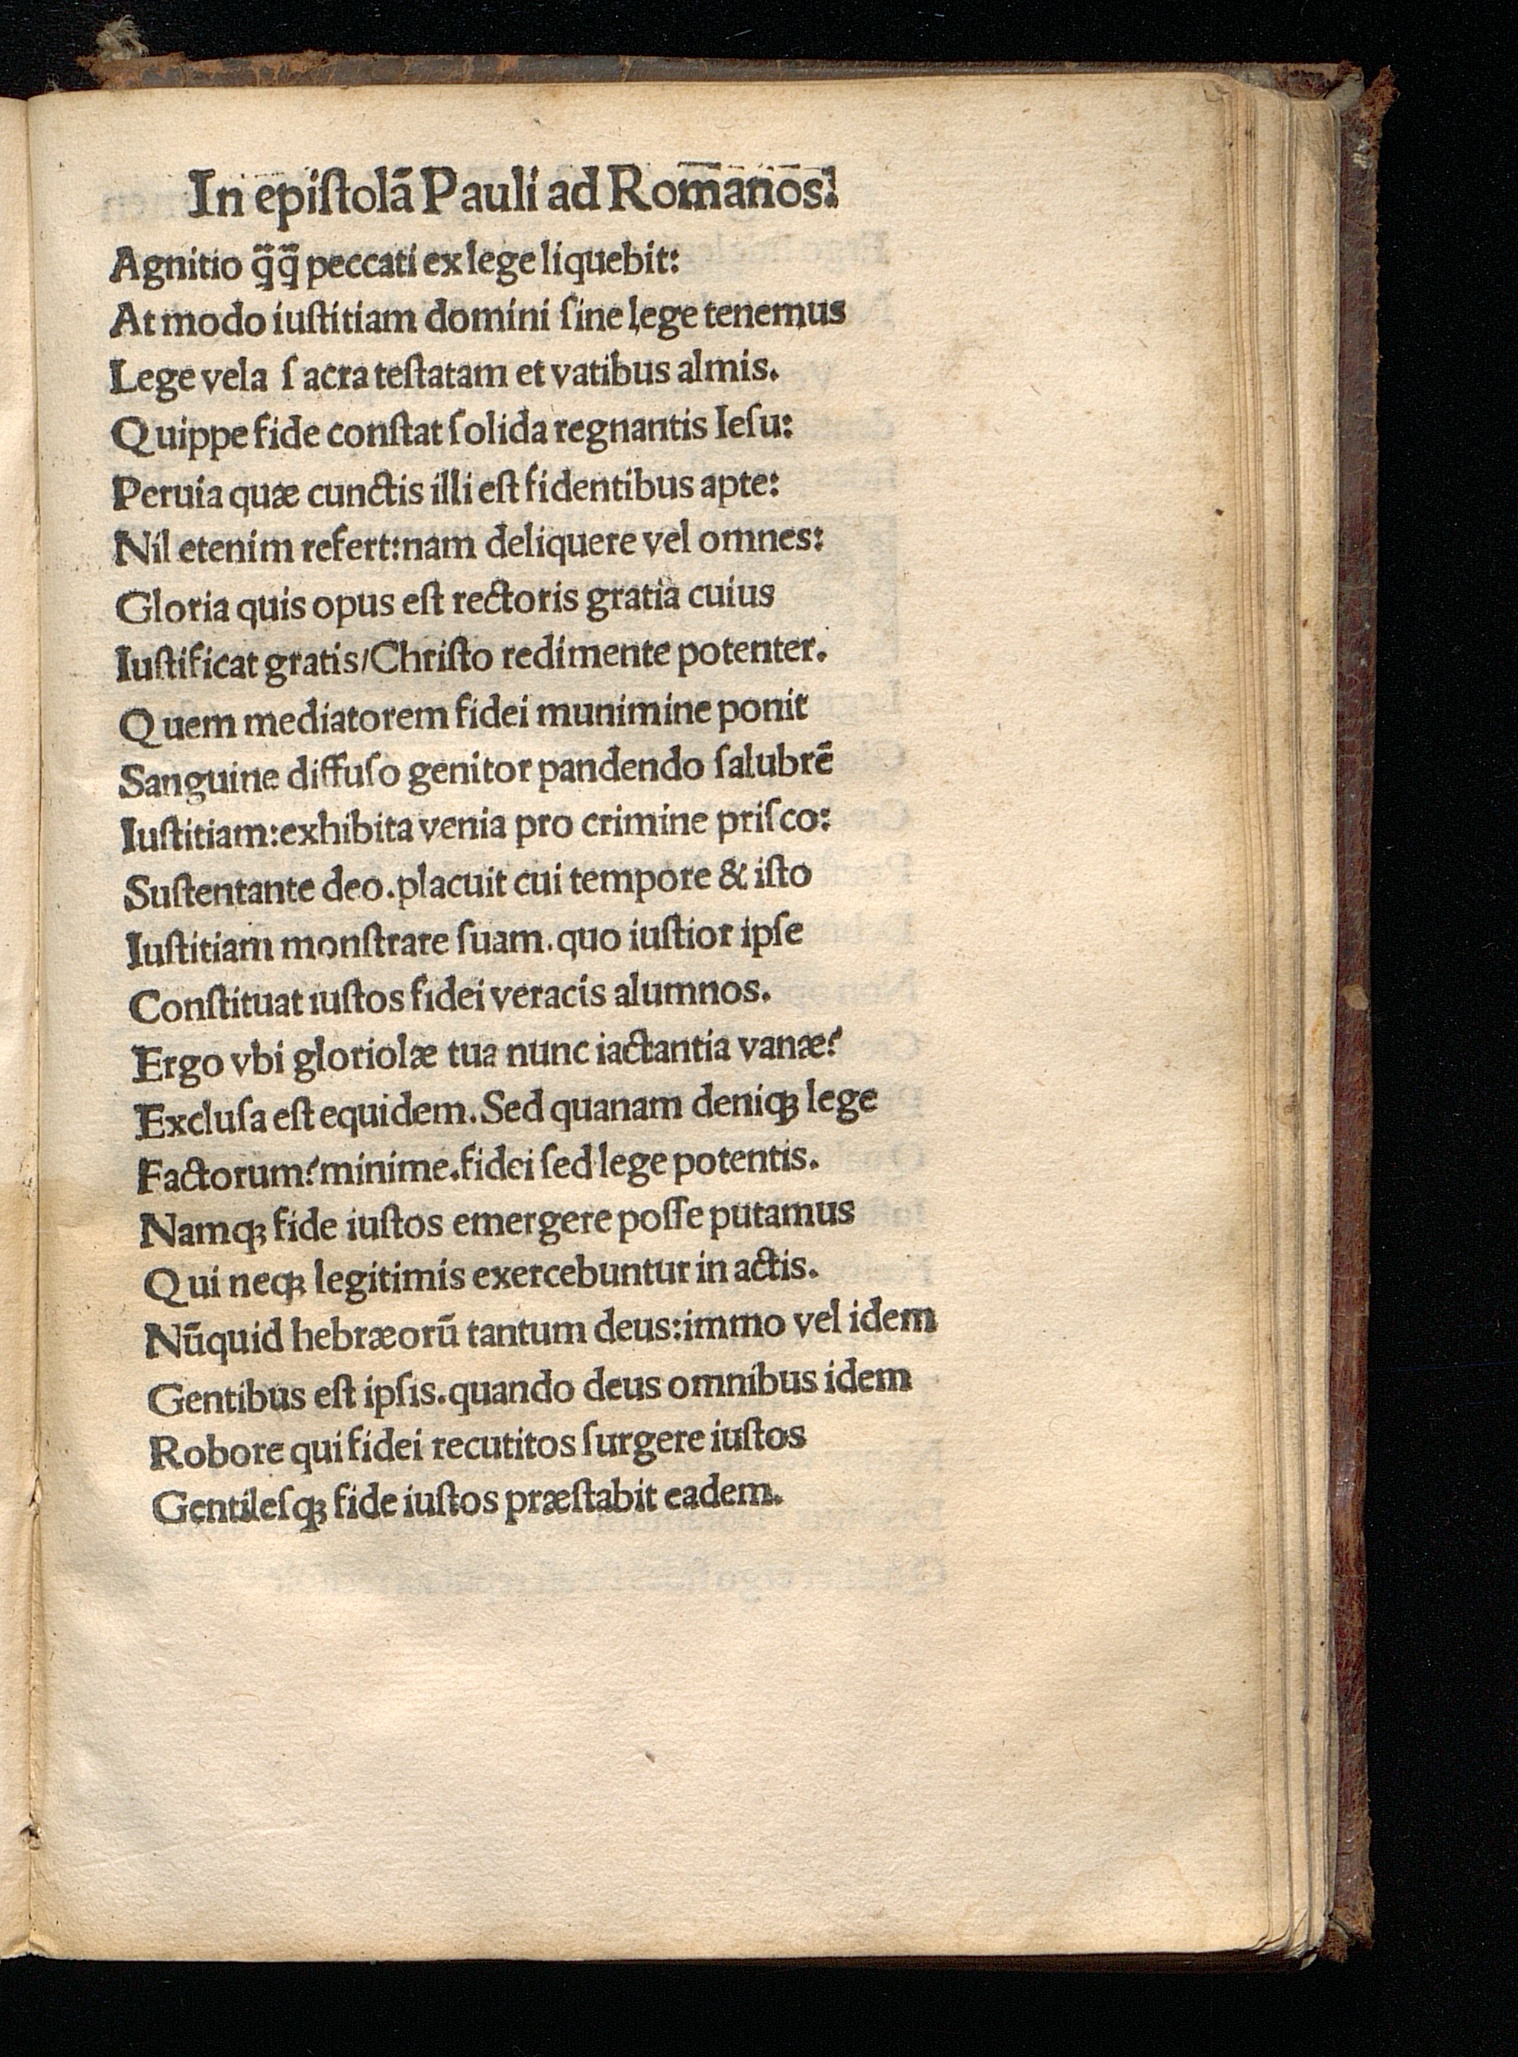 In epiſtolā Pauli ad Romanos.
Agnitio q̄q̄ peccati ex lege liquebit:
At modo iuſtitiam domini ſine lege tenemus
Lege vela ſ acra teſtatam et vatibus almis.
Quippe fide conſtat ſolida regnantis Ieſu:
Peruia quæ cunctis illi eſt fidentibus apte:
Nil etenim refert:nam deliquere vel omnes:
Gloria quis opus eſt rectoris gratia cuius
Iuſtificat gratis/Chriſto redimente potenter.
Quem mediatorem fidei munimine ponit
Sanguine diffuſo genitor pandendo ſalubrē
Iuſtitiam:exhibita venia pro crimine priſco:
Suſtentante deo.placuit cui tempore & iſto
Iuſtitiam monſtrare ſuam.quo iuſtior ipſe
Conſtituat iuſtos fidei veracis alumnos.
Ergo vbi gloriolæ tua nunc iactantia vanæ?
Excluſa eſt equidem.Sed quanam deniqꝫ lege
Factorum?minime.fidei ſed lege potentis.
Namqꝫ fide iuſtos emergere poſſe putamus
Qui neqꝫ legitimis exercebuntur in actis.
Nūquid hebræorū tantum deus:immo vel idem
Gentibus eſt ipſis.quando deus omnibus idem
Robore qui fidei recutitos ſurgere iuſtos
Gentileſqꝫ fide iuſtos præſtabit eadem.